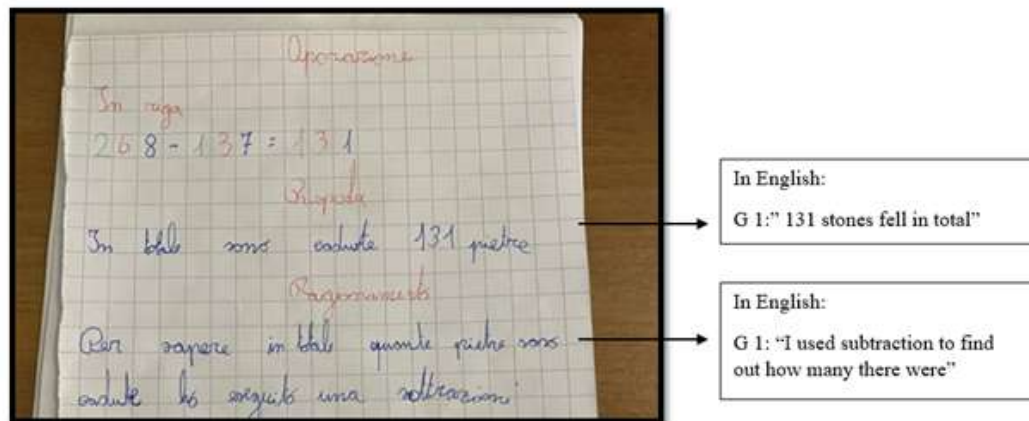 Operazione
In riga
268-137=131
Risposta
In totale sono cadute 131 pietre
Ragionamento
Per sapere in totale quante pietre sono
cadute ho eseguito una sottrazione
In English:
G 1:” 131 stones fell in total”
In English:
G 1: “I used subtraction to find
out how many there were”